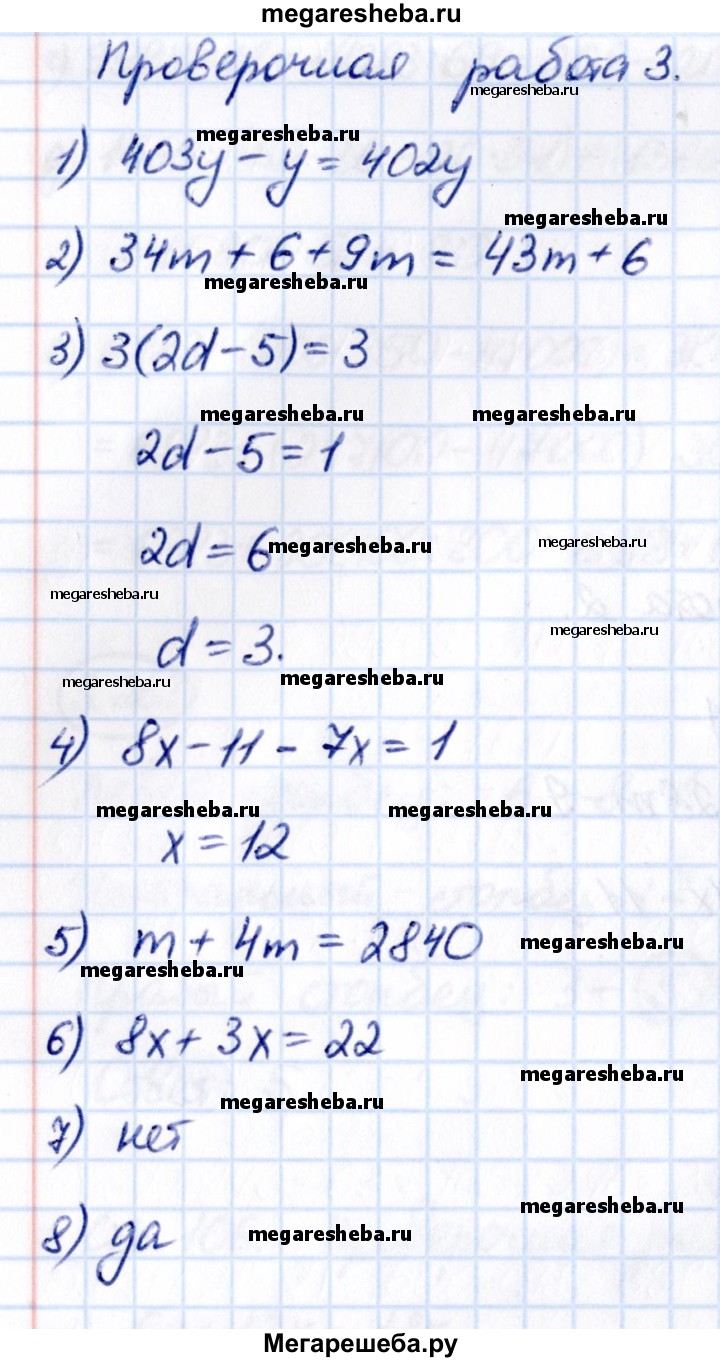 megaresheba.ru
Проверочная работа 3.
megaresheba.ru
megaresheba.ru
1) 403y - y = 402y
megaresheba.ru
2) 34m + 6 + 9m = 43m + 6
megaresheba.ru
3) 3(2d - 5) = 3
megaresheba.ru megaresheba.ru
2d - 5 = 1
2d = 6
megaresheba.ru megaresheba.ru
megaresheba.ru
d = 3.
megaresheba.ru
megaresheba.ru megaresheba.ru
4) 8x - 11 - 7x = 1
megaresheba.ru megaresheba.ru
x = 12
5) m + 4m = 2840
megaresheba.ru
megaresheba.ru
6) 8x + 3x = 22
megaresheba.ru
megaresheba.ru
7) нет
megaresheba.ru
8) да
megaresheba.ru
Мегарешеба.ру